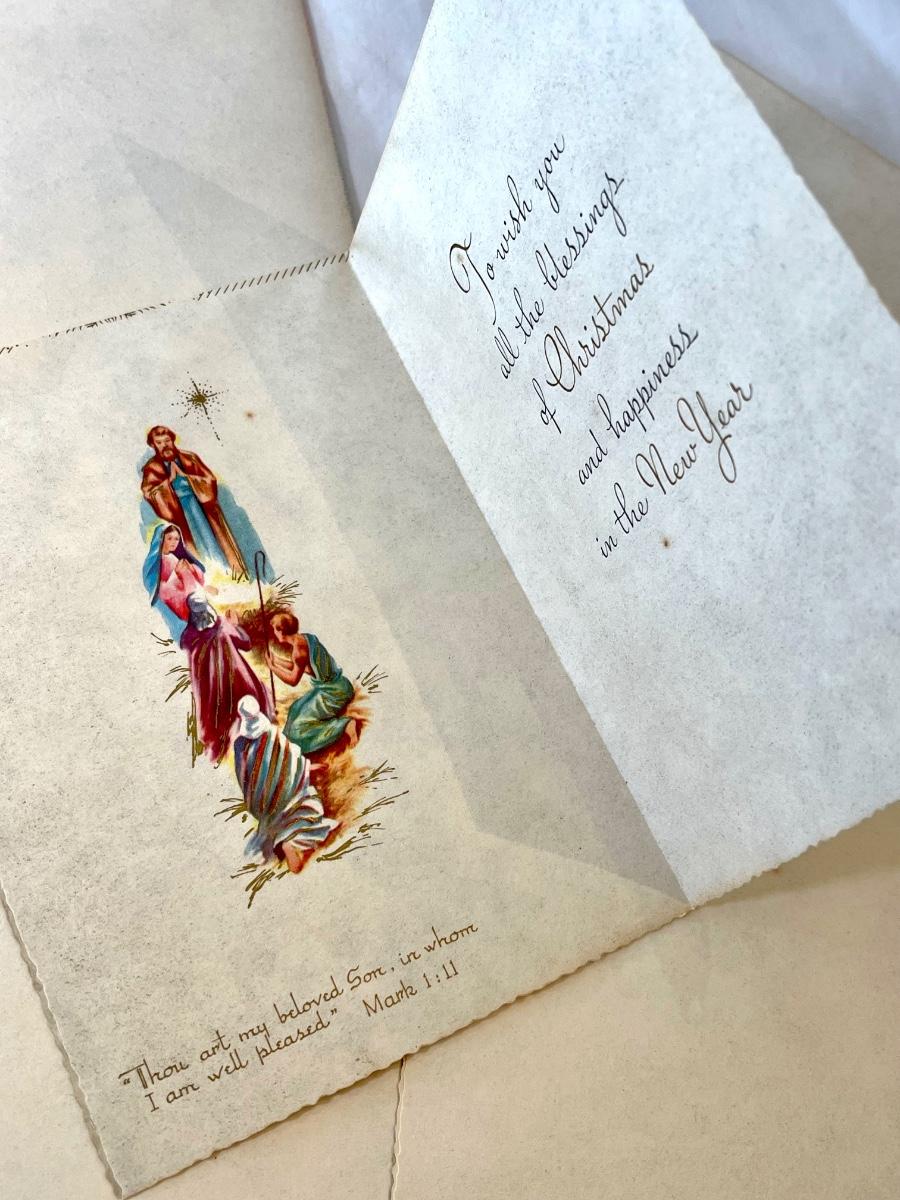 To wish you
all the blessings
of Christmas
and happiness
in the New Year
"Thou art my beloved Son, in whom
I am well pleased" Mark 1:11